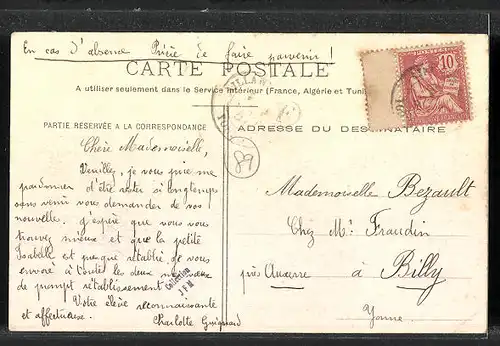 En cas d'absence Prière de faire parvenir !
CARTE POSTALE
A utiliser seulement dans le Service Intérieur (France, Algérie et Tuni
PARTIE RÉSERVÉE A LA CORRESPONDANCE
ADRESSE DU DESTINATAIRE
10
89
Chère Mademoiselle,
Veuillez, je vous prie me
pardonner d'être rester si longtemps
sans venir vous demander de vos
nouvelle. J'espère que vous vous
trouvez mieux et que la petite
Isabelle est presque rétablie, je vous
envoie à toute les deux mes vœux
de prompt rétablissement
Votre élève reconnaissante
et affectueuse.
Charlotte Guignard
Collection
JFM
Mademoiselle Bezault
Chez Mr Fraudin
près Auxerre à Billy
Yonne